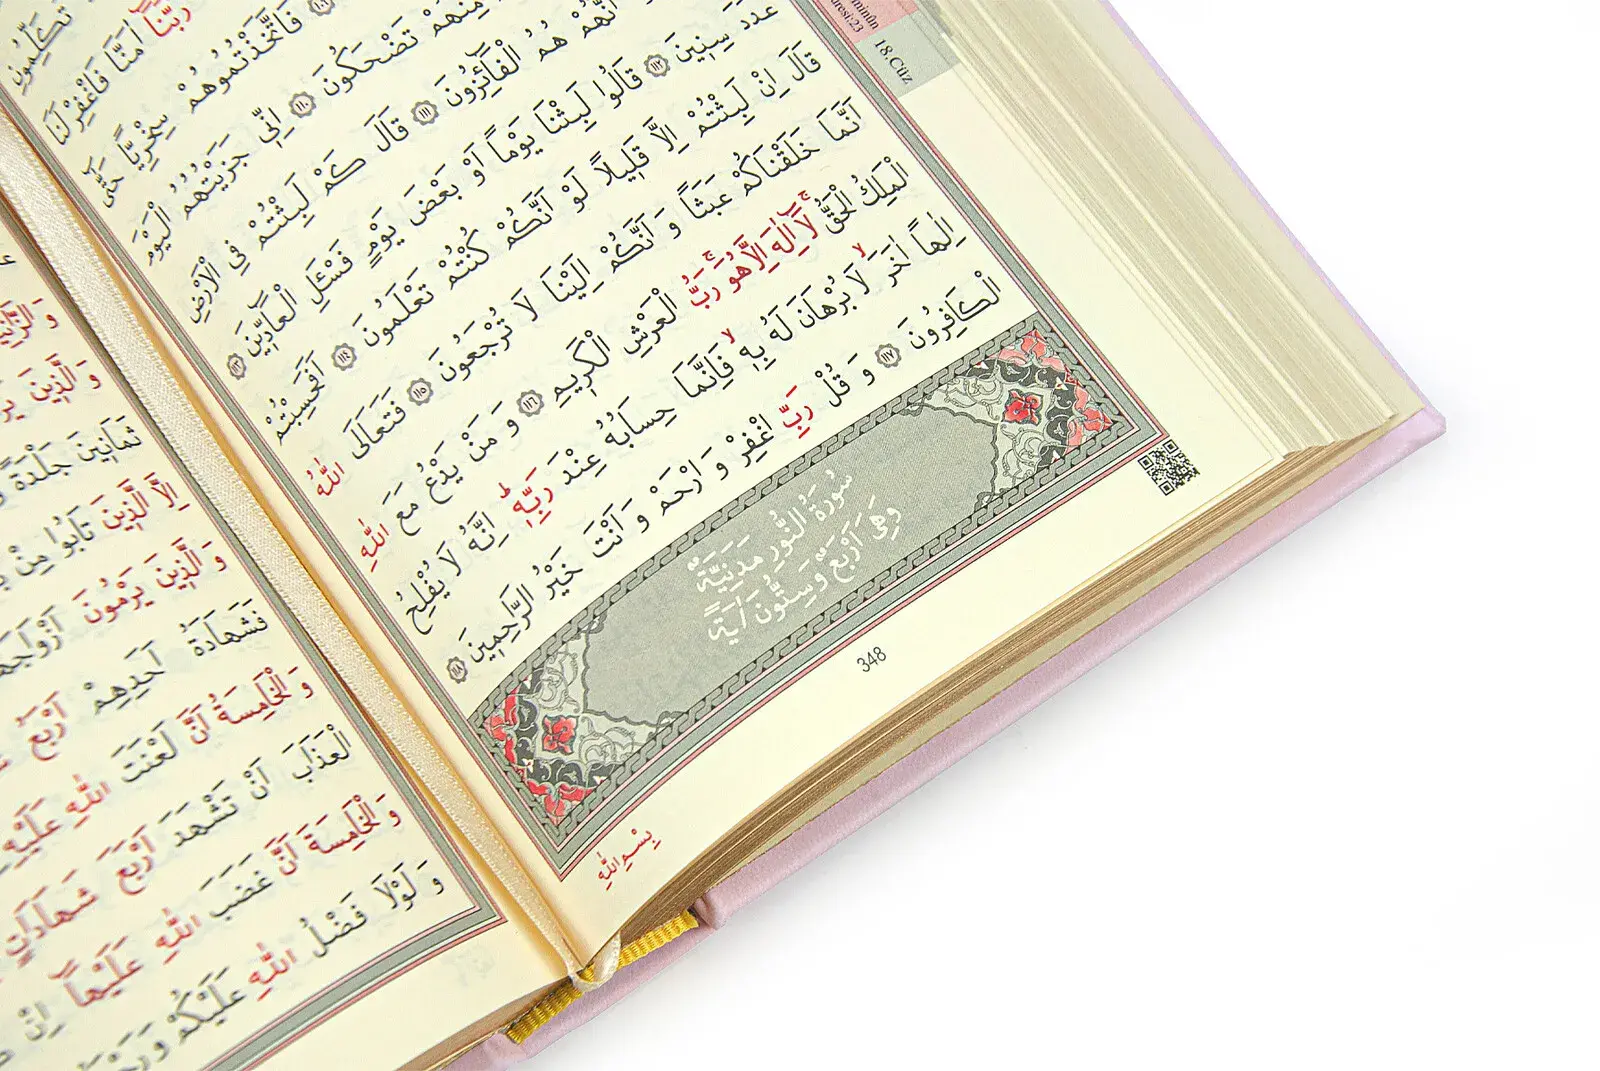 منون
suresi:23
18.Cüz
تُكَلِّمُونِ
رَبَّنَٓا اٰمَنَّا فَاغْفِرْ لَنَا
فَاتَّخَذْتُمُوهُمْ سِخْرِيًّا حَتّٰٓى
مِنْهُمْ تَضْحَكُونَ ﴿١١٠﴾ اِنّٖى جَزَيْتُهُمُ الْيَوْمَ
اَنَّهُمْ هُمُ الْفَٓائِزُونَ ﴿١١١﴾ قَالَ كَمْ لَبِثْتُمْ فِى الْاَرْضِ
عَدَدَ سِنٖينَ ﴿١١٢﴾ قَالُوا لَبِثْنَا يَوْمًا اَوْ بَعْضَ يَوْمٍ فَسْـَٔلِ الْعَٓادّٖينَ ﴿١١٣﴾
قَالَ اِنْ لَبِثْتُمْ اِلَّا قَلٖيلًا لَوْ اَنَّكُمْ كُنْتُمْ تَعْلَمُونَ ﴿١١٤﴾ اَفَحَسِبْتُمْ
اَنَّمَا خَلَقْنَاكُمْ عَبَثًا وَ اَنَّكُمْ اِلَيْنَا لَا تُرْجَعُونَ ﴿١١٥﴾ فَتَعَالَى اللّٰهُ
الْمَلِكُ الْحَقُّۚ لَٓا اِلٰهَ اِلَّا هُوَۚ رَبُّ الْعَرْشِ الْكَرٖيمِ ﴿١١٦﴾ وَ مَنْ يَدْعُ مَعَ اللّٰهِ
اِلٰهًا اٰخَرَۙ لَا بُرْهَانَ لَهُ بِهٖۙ فَاِنَّمَا حِسَابُهُ عِنْدَ رَبِّهٖؕ اِنَّهُ لَا يُفْلِحُ
الْكَافِرُونَ ﴿١١٧﴾ وَ قُلْ رَبِّ اغْفِرْ وَ ارْحَمْ وَ اَنْتَ خَيْرُ الرَّاحِمٖينَ ﴿١١٨﴾
سُورَةُ النُّورِ مَدَنِيَّةٌ
وَهِىَ اَرْبَعٌ وَسِتُّونَ اٰيَةً
348
بِسْمِ اللّٰهِ
وَ الَّذٖينَ
ثَمَانٖينَ جَلْدَةً
اِلَّا الَّذٖينَ تَابُوا مِنْ
وَ الَّذٖينَ يَرْمُونَ اَزْوَاجَهُمْ
فَشَهَادَةُ اَحَدِهِمْ اَرْبَعُ
وَ الْخَامِسَةُ اَنَّ لَعْنَتَ اللّٰهِ عَلَيْهِ
الْعَذَابَ اَنْ تَشْهَدَ اَرْبَعَ شَهَادَاتٍ
وَ الْخَامِسَةَ اَنَّ غَضَبَ اللّٰهِ عَلَيْهَٓا اِنْ
وَ لَوْلَا فَضْلُ اللّٰهِ عَلَيْكُمْ